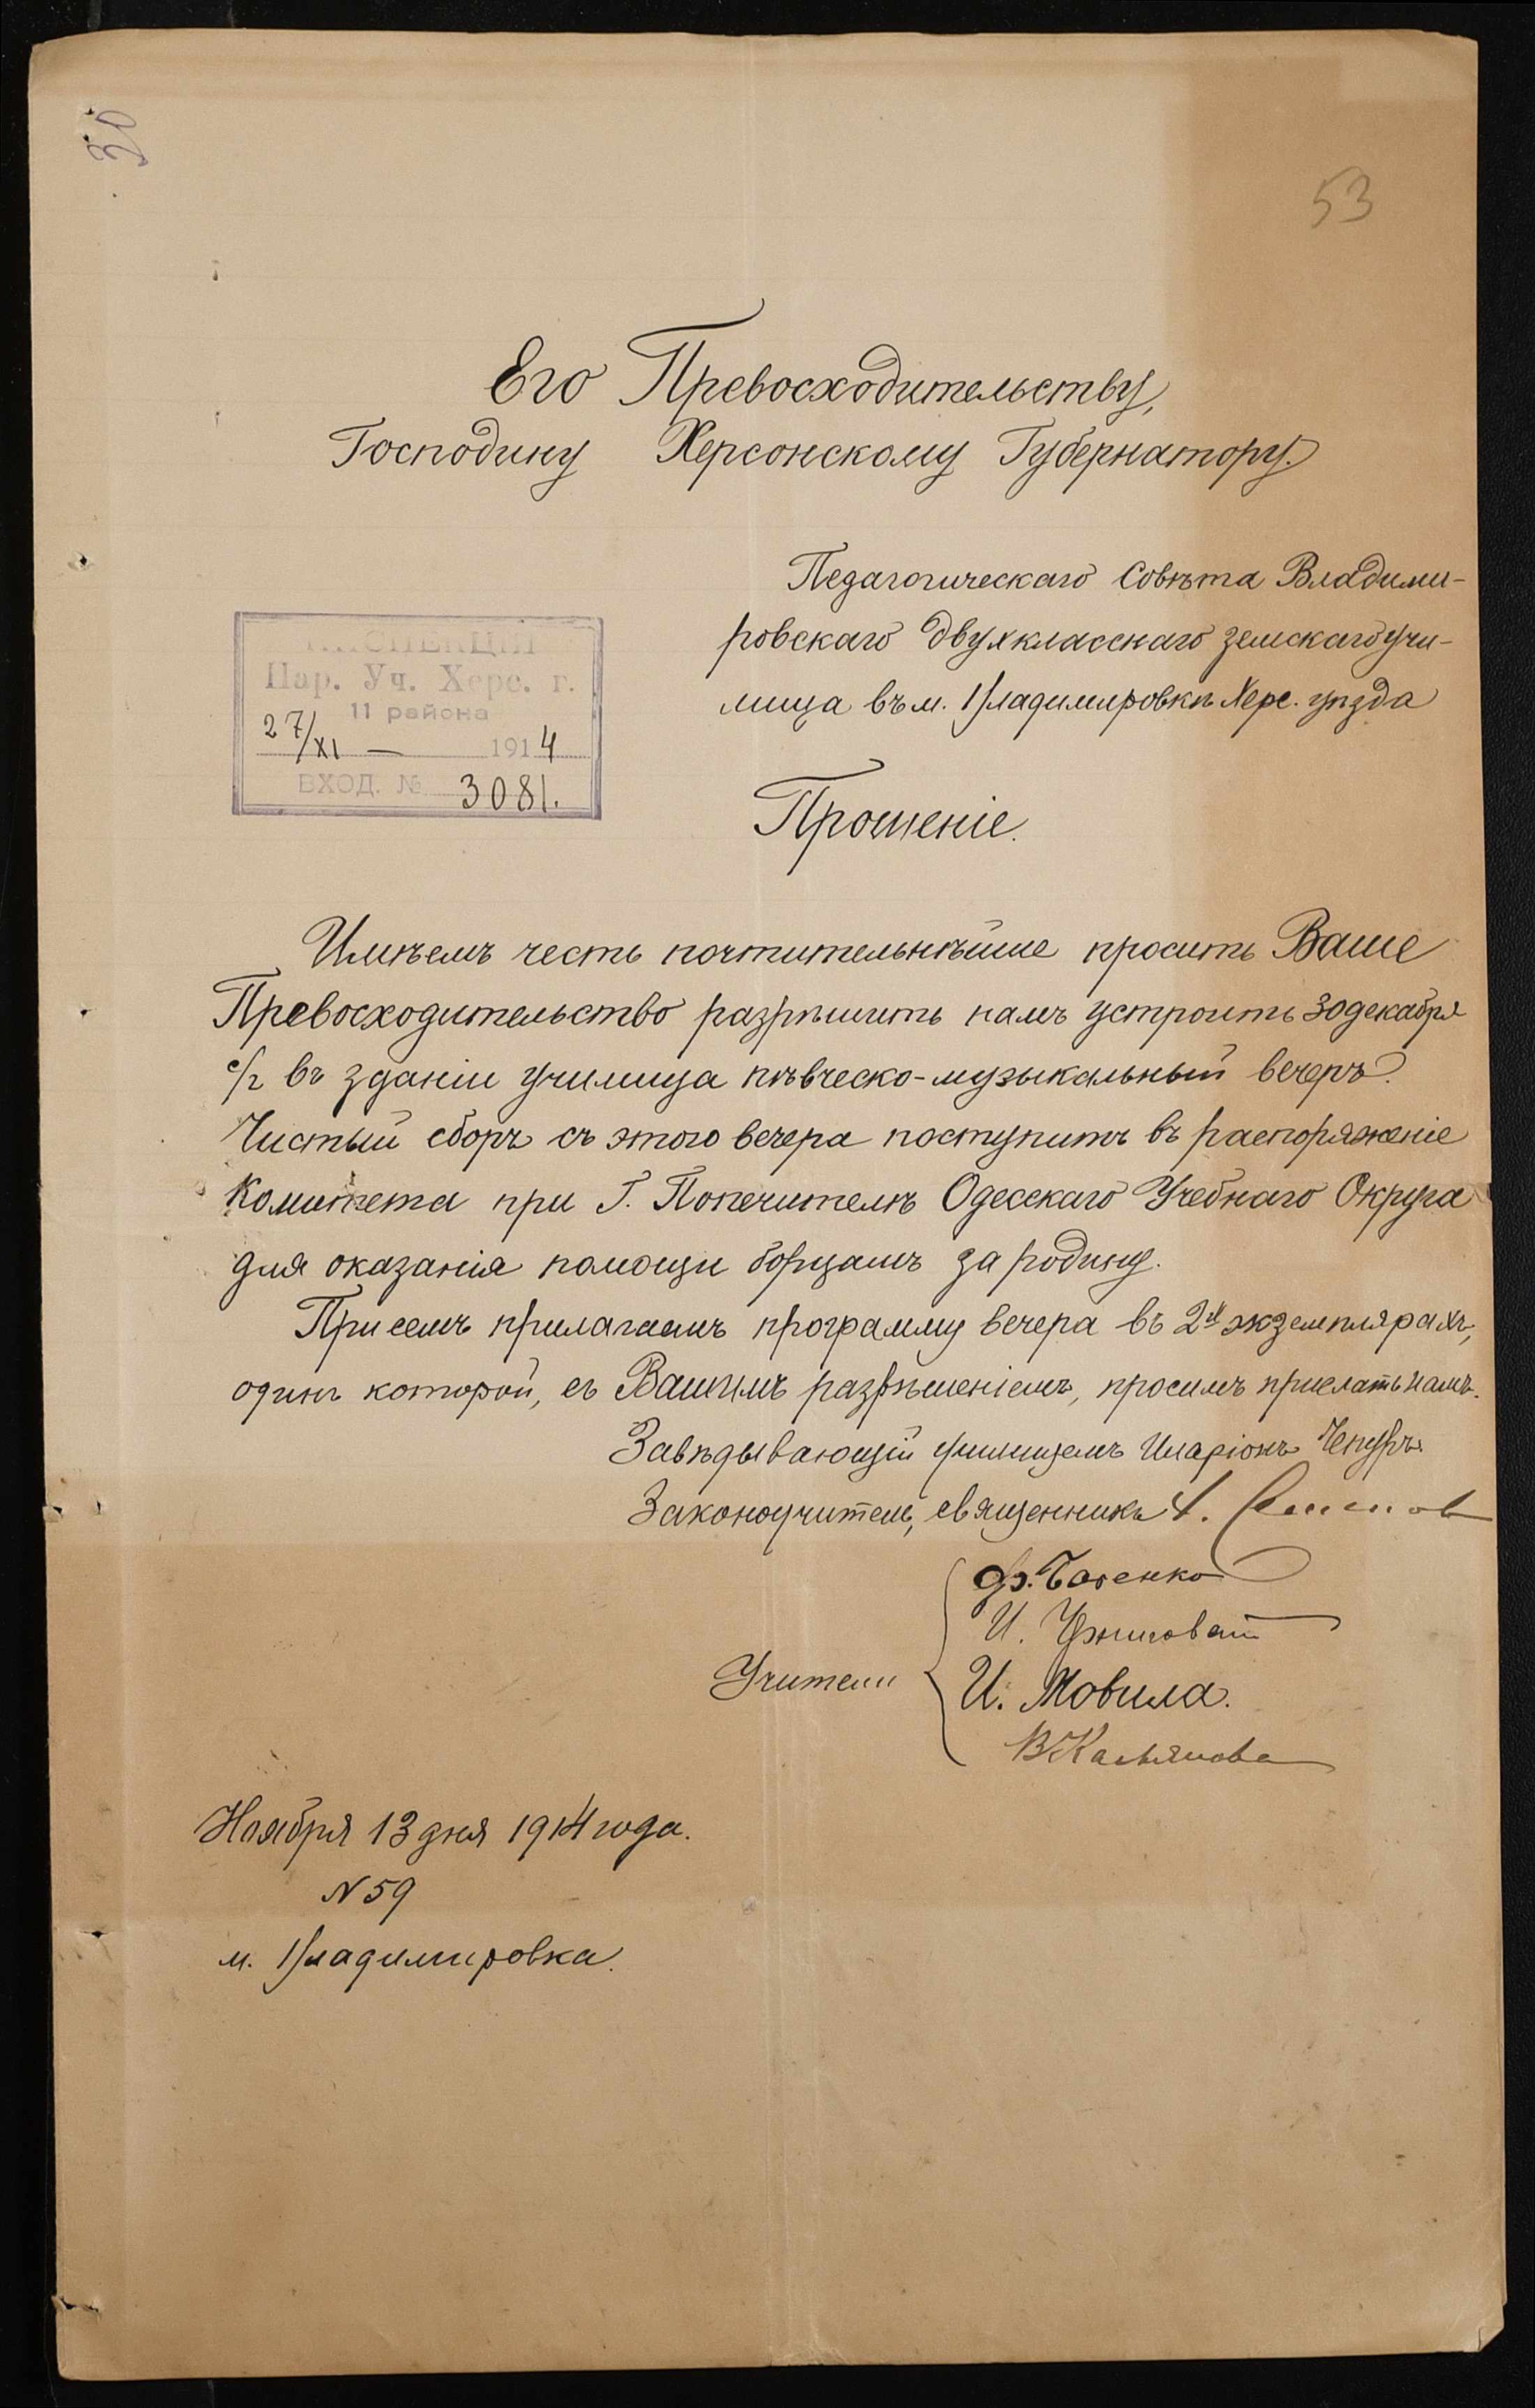 30
53
Его Превосходительству,
Господину Херсонскому Губернатору.
Педагогическаго Совѣта Владими-
ровскаго двухкласснаго земскаго учи-
лища въ м. Владимировкѣ Херс. уѣзда
Нар. Уч. Херс. г.
11 района
27/XI — 1914
ВХОД. № 3081.
Прошеніе.
Имѣемъ честь почтительнѣйше просить Ваше
Превосходительство разрѣшить намъ устроить 30 декабря
с/г въ зданіи училища пѣвческо-музыкальный вечеръ.
Чистый сборъ съ этого вечера поступитъ въ распоряженіе
Комитета при Г. Попечителѣ Одесскаго Учебнаго Округа
для оказанія помощи борцамъ за родину.
При семъ прилагаемъ программу вечера въ 2х экземплярахъ,
одинъ которой, съ Вашимъ разрѣшеніемъ, просимъ прислать намъ.
Завѣдывающій училищемъ Иларіонъ Чепуръ.
Законоучитель, священникъ
Учители
И. Мовила.
Ноября 13 дня 1914 года.
N 59
м. Владимировка.